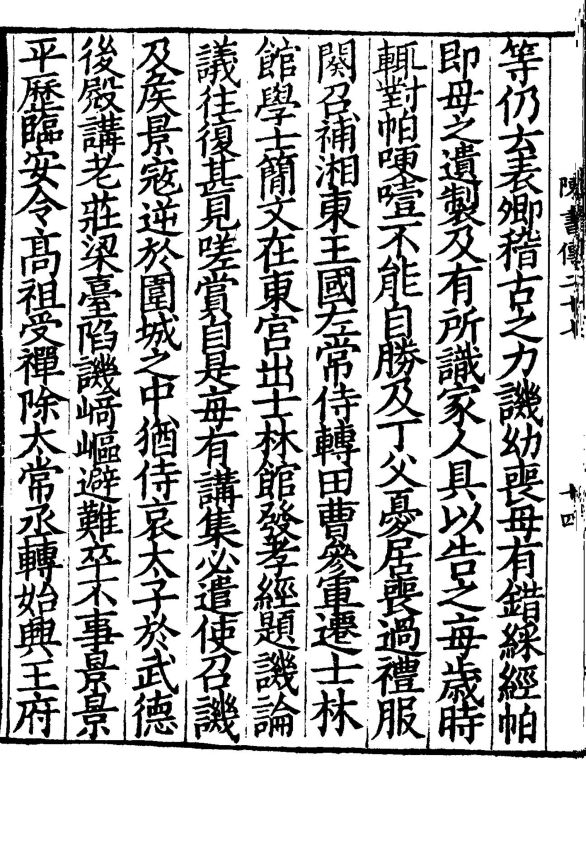 等仍云表卿稽古之力譏幼喪母有錯綵經帕
即母之遺製及有所識家人具以告之每歲時
輒對帕哽噎不能自勝及丁父憂居喪過禮服
闋召補湘東王國左常侍轉田曹參軍遷士林
館學士簡文在東宮出士林館發孝經題譏論
議往復甚見嗟賞自是每有講集必遣使召譏
及矦景寇逆於圍城之中猶侍哀太子於武德
後殿講老莊梁臺陷譏崎嶇避難卒不事景景
平歷臨安令高祖受禪除太常丞轉始興王府
陳書傳二十七
十四